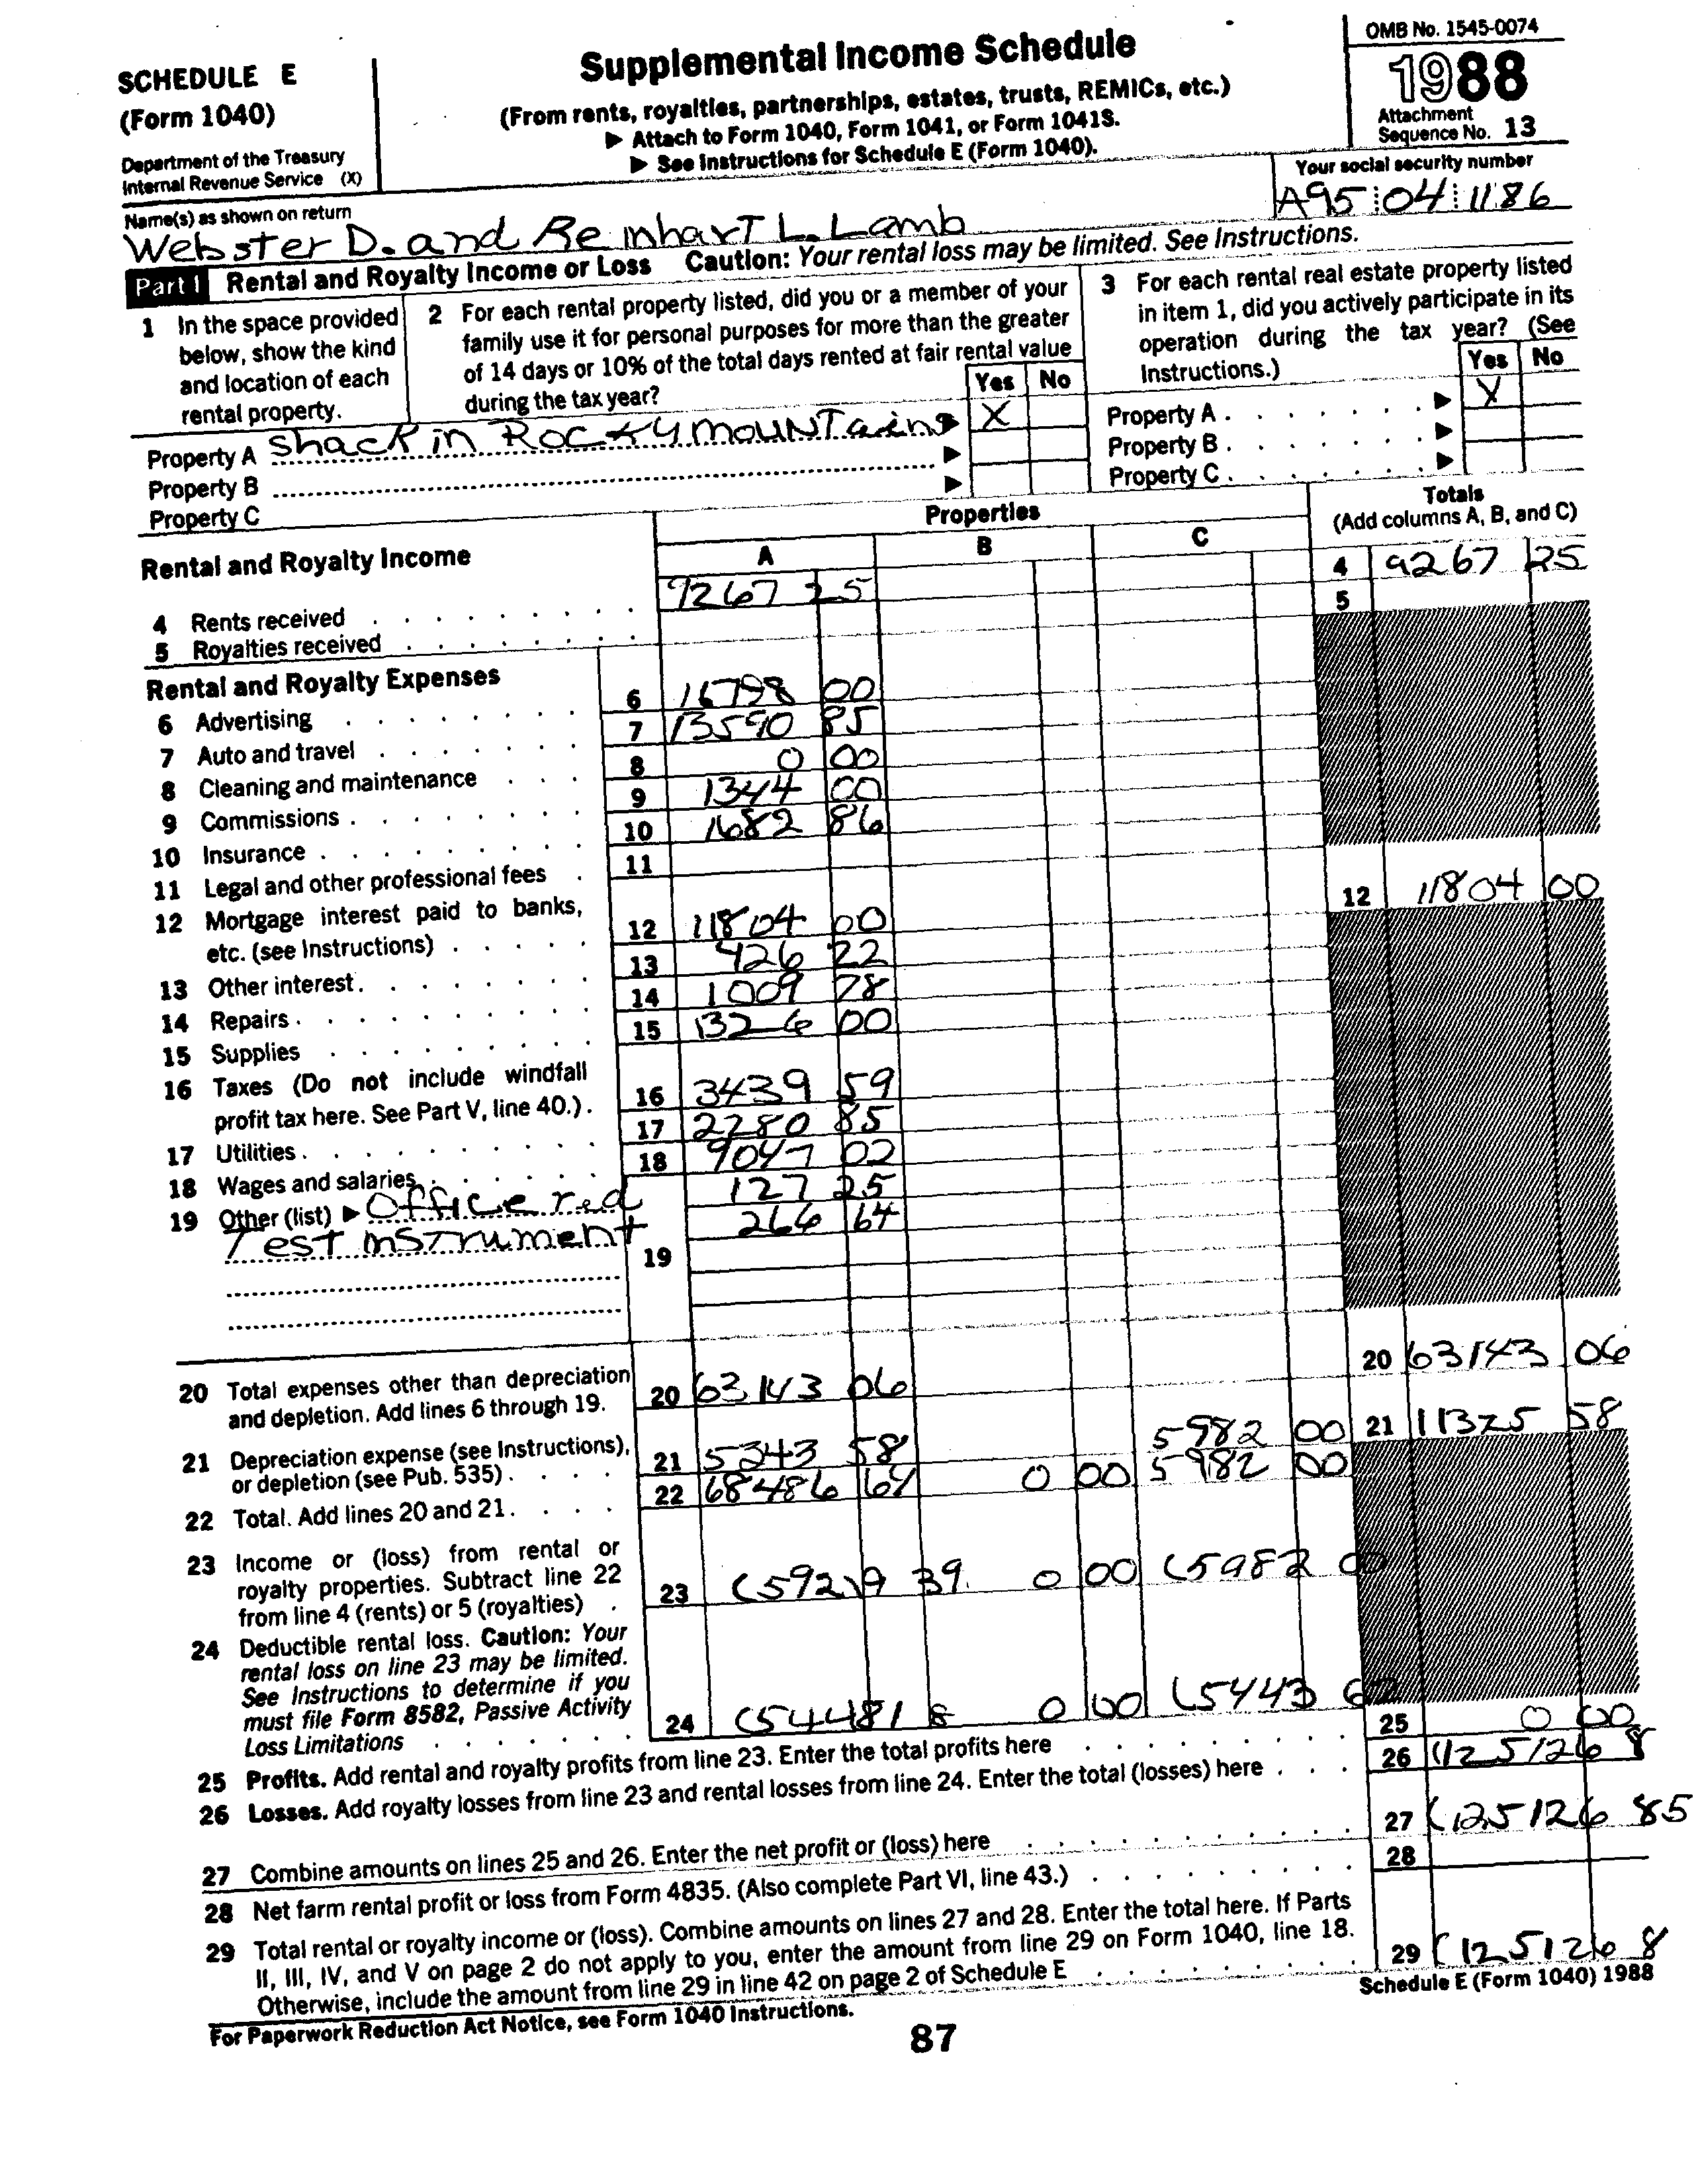 SCHEDULE E
(Form 1040)
Department of the Treasury
Internal Revenue Service (X)
Supplemental Income Schedule
(From rents, royalties, partnerships, estates, trusts, REMICs, etc.)
▶ Attach to Form 1040, Form 1041, or Form 1041S.
▶ See Instructions for Schedule E (Form 1040).
OMB No. 1545-0074
1988
Attachment
Sequence No. 13
Name(s) as shown on return
Webster D. and Reinhart L. Lamb
Your social security number
A95 04 1186
Part I Rental and Royalty Income or Loss Caution: Your rental loss may be limited. See Instructions.
1 In the space provided
below, show the kind
and location of each
rental property.
2 For each rental property listed, did you or a member of your
family use it for personal purposes for more than the greater
of 14 days or 10% of the total days rented at fair rental value
during the tax year?
Yes No
3 For each rental real estate property listed
in item 1, did you actively participate in its
operation during the tax year? (See
Instructions.)
Yes No
Property A shack in Rocky mountains ▶ X
Property B ▶
Property C ▶
Property A ▶ X
Property B ▶
Property C ▶
Rental and Royalty Income
Properties
A B C
Totals
(Add columns A, B, and C)
4 Rents received 9267 25 4 9267 25
5 Royalties received 5
Rental and Royalty Expenses
6 Advertising 6 16798 00
7 Auto and travel 7 13590 85
8 Cleaning and maintenance 8 0 00
9 Commissions 9 1344 00
10 Insurance 10 1682 86
11 Legal and other professional fees 11
12 Mortgage interest paid to banks,
etc. (see Instructions) 12 11804 00 12 11804 00
13 Other interest 13 426 22
14 Repairs 14 1009 78
15 Supplies 15 1326 00
16 Taxes (Do not include windfall
profit tax here. See Part V, line 40.) 16 3439 59
17 Utilities 17 2280 85
18 Wages and salaries 18 9047 02
19 Other (list) ▶ Office red 127 25
Test instrument 19 266 64
20 Total expenses other than depreciation
and depletion. Add lines 6 through 19. 20 63143 06 20 63143 06
21 Depreciation expense (see Instructions),
or depletion (see Pub. 535) 21 5343 58 5982 00 21 11325 58
22 Total. Add lines 20 and 21 22 68486 64 0 00 5982 00
23 Income or (loss) from rental or
royalty properties. Subtract line 22
from line 4 (rents) or 5 (royalties) 23 (59219 39 0 00 (5982 00
24 Deductible rental loss. Caution: Your
rental loss on line 23 may be limited.
See Instructions to determine if you
must file Form 8582, Passive Activity
Loss Limitations 24 (54481 8 0 00 (5443 67
25 Profits. Add rental and royalty profits from line 23. Enter the total profits here 25 0 00
26 Losses. Add royalty losses from line 23 and rental losses from line 24. Enter the total (losses) here 26 (125126 8
27 Combine amounts on lines 25 and 26. Enter the net profit or (loss) here 27 (125126 85
28 Net farm rental profit or loss from Form 4835. (Also complete Part VI, line 43.) 28
29 Total rental or royalty income or (loss). Combine amounts on lines 27 and 28. Enter the total here. If Parts
II, III, IV, and V on page 2 do not apply to you, enter the amount from line 29 on Form 1040, line 18.
Otherwise, include the amount from line 29 in line 42 on page 2 of Schedule E 29 (125126 8
For Paperwork Reduction Act Notice, see Form 1040 Instructions.
Schedule E (Form 1040) 1988
87